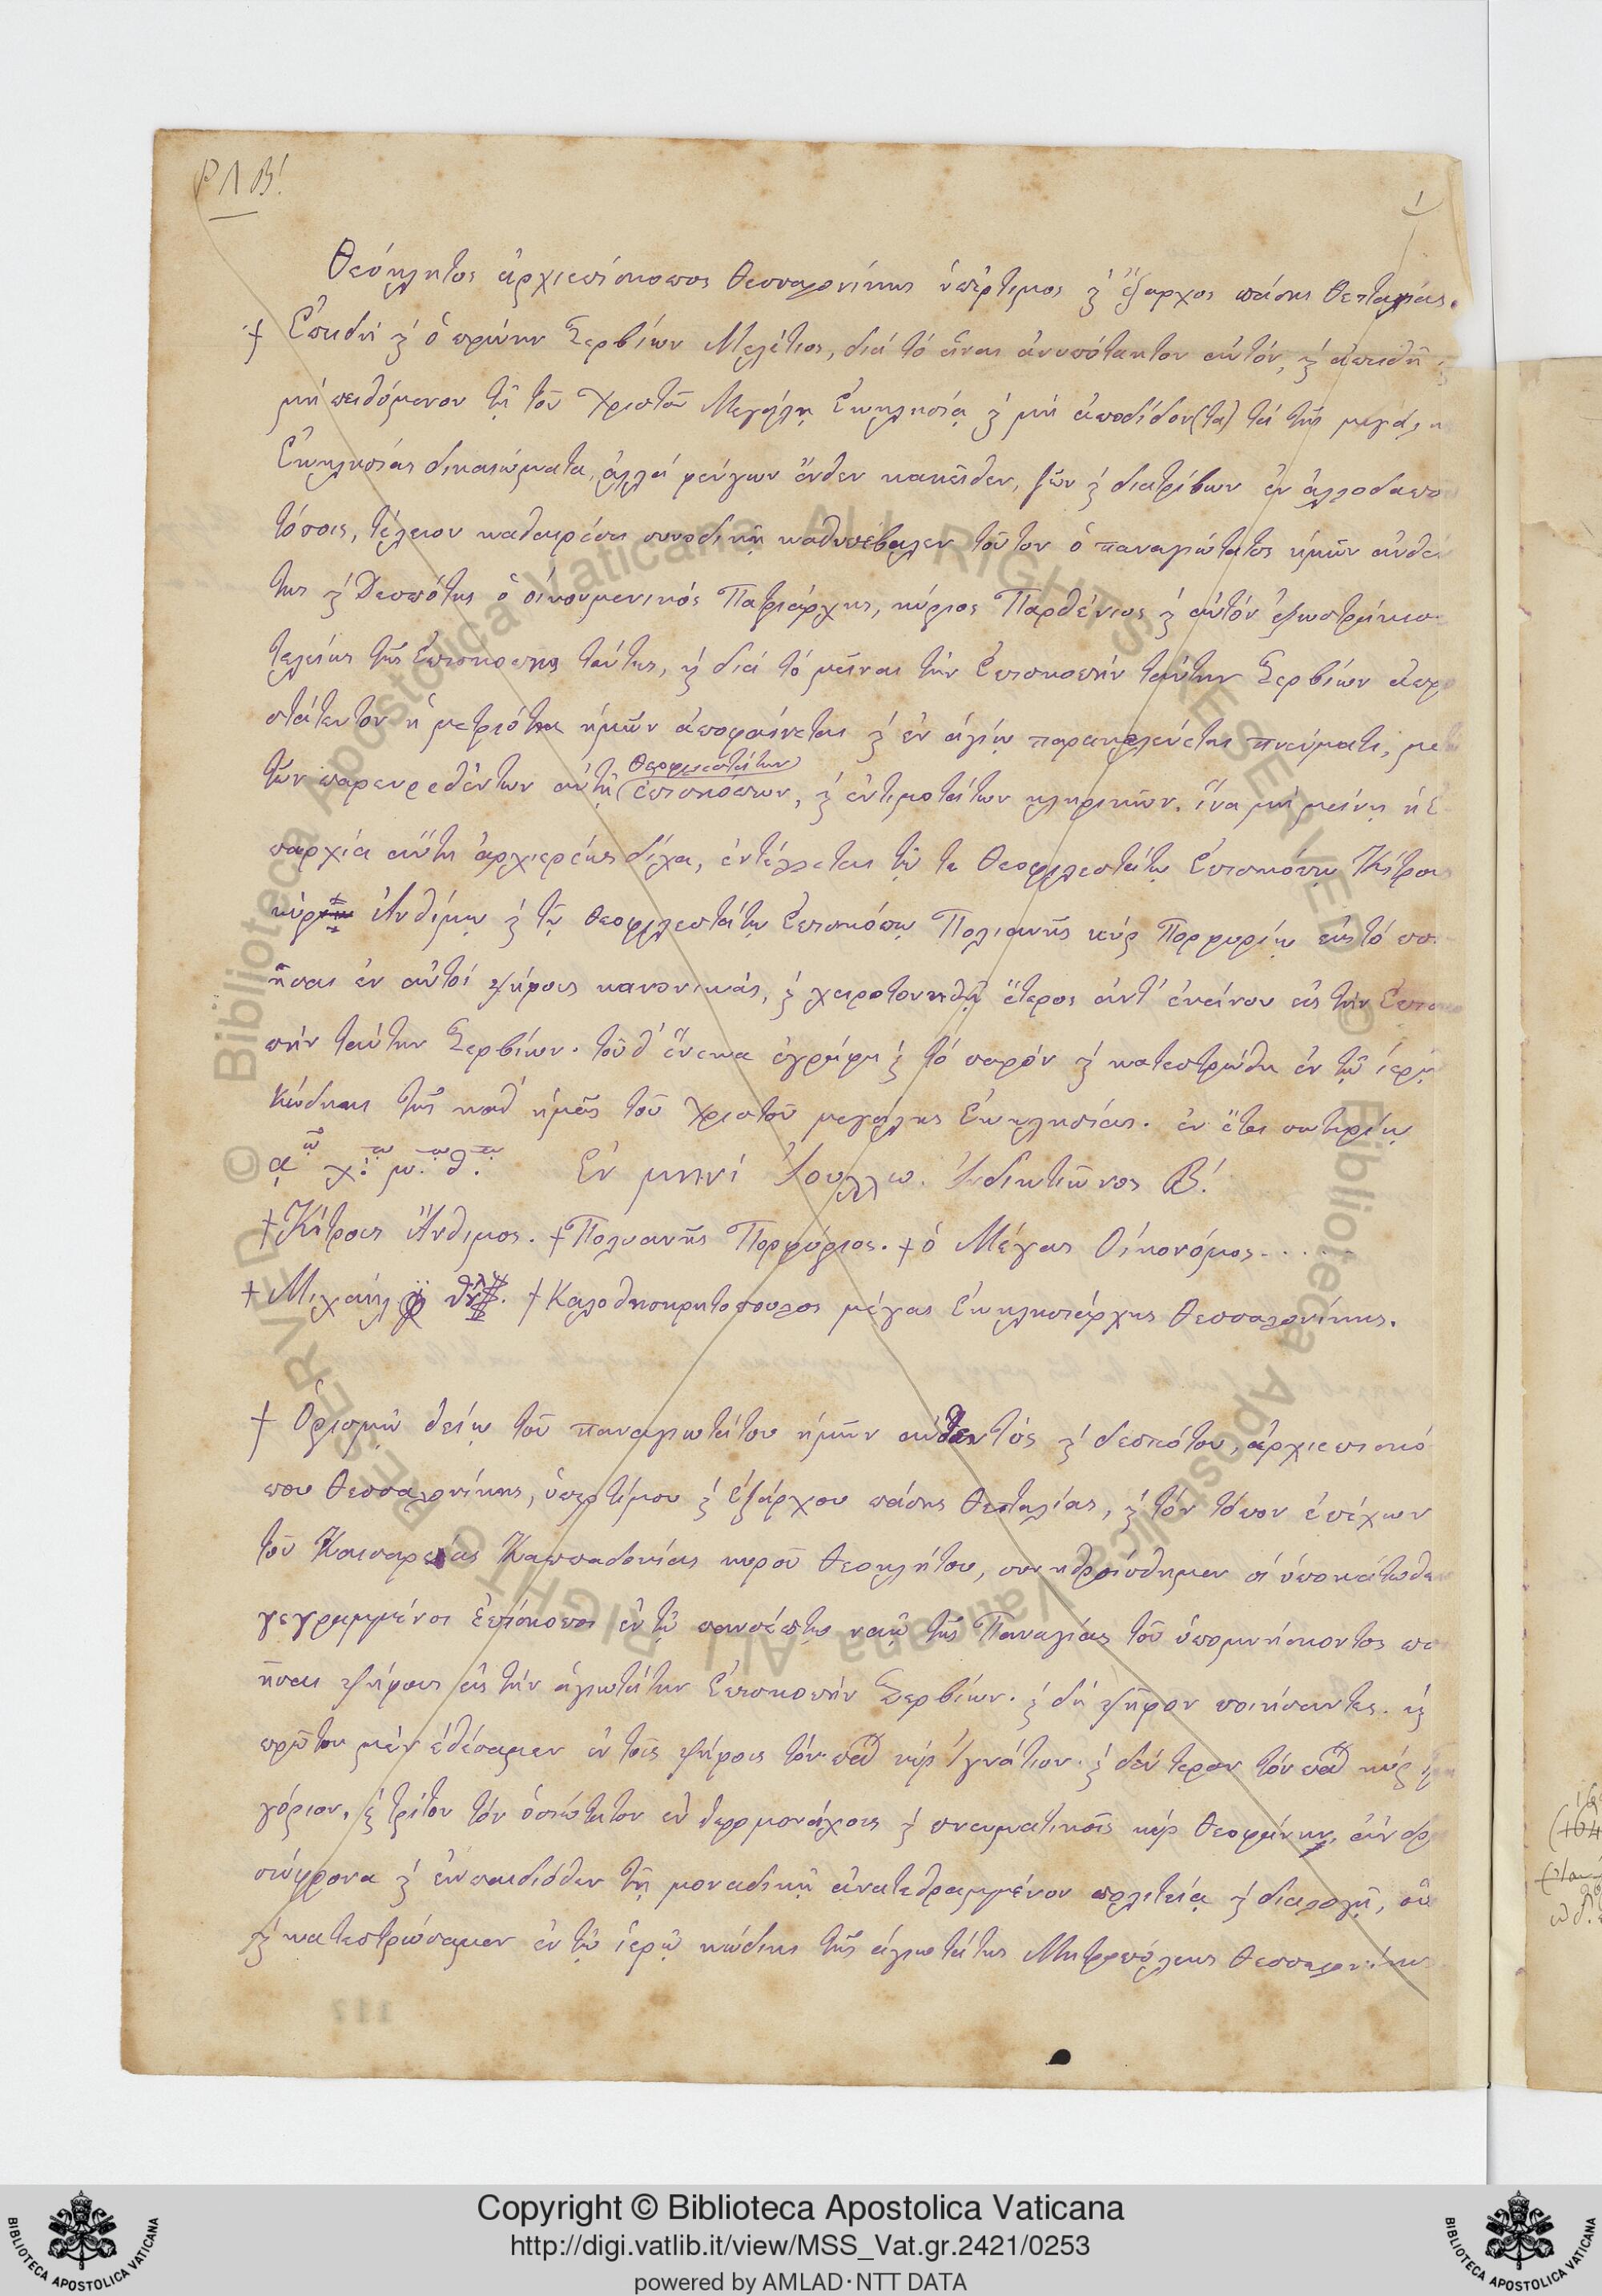 ΡΛΒ!
1
Θεόκλητος ἀρχιεπίσκοπος Θεσσαλονίκης ὑπέρτιμος ϗ ἔξαρχος πάσης Θετταλίας.
† Ἐπειδὴ ϗ ὁ πρώην Σερβίων Μελέτιος, διὰ τὸ εἶναι ἀνυπότακτον αὐτόν, ϗ ἀπειθῆ ϗ
μὴ πειθόμενον τῇ τοῦ Χριστοῦ Μεγάλῃ Ἐκκλησίᾳ ϗ μὴ ἀποδίδον(τα) τὰ τῆς μεγάλης
Ἐκκλησίας δικαιώματα, ἀλλὰ φεύγων ἔνθεν κακεῖθεν, ζῶν ϗ διατρίβων ἐν ἀλλοδαπο
τόποις, τέλειον καθαιρέσει συνοδικῇ καθυπέβαλεν τοῦτον ὁ παναγιώτατος ἡμῶν αὐθέν
της ϗ Δεσπότης ὁ οἰκουμενικὸς Πατριάρχης, κύριος Παρθένιος ϗ αὐτὸν ἐξωστράκισε
τελείως τῆς Ἐπισκοπῆς ταύτης, ϗ διὰ τὸ μεῖναι τὴν Ἐπισκοπὴν ταύτην Σερβίων ἀπρο
στάτευτον ἡ μετριότης ἡμῶν ἀποφαίνεται ϗ ἐν ἁγίῳ παρακελεύεται πνεύματι, μετὰ
τῶν παρευρεθέντων αὐτῇ (θεοφιλεστάτων) ἐπισκόπων, ϗ ἐντιμοτάτων κληρικῶν. ἵνα μὴ μείνῃ ἡ Ἐ
παρχία αὕτη ἀρχιερέως δίχα, ἐντέλλεται τῷ τε θεοφιλεστάτῳ Ἐπισκόπῳ Κίτρους
κύρ Ἀνθίμῳ ϗ τῷ θεοφιλεστάτῳ Ἐπισκόπῳ Πολιανῆς κύρ Πορφυρίῳ εἰς τὸ ποι
ῆσαι ἐν αὐτοί ψήφους κανονικάς, ϗ χειροτονηθῇ ἕτερος ἀντ' ἐκείνου εἰς τὴν Ἐπισκο
πὴν ταύτην Σερβίων. τοῦδ' ἕνεκα ἐγράφη ϗ τὸ παρόν ϗ κατεστρώθη ἐν τῷ ἱερῷ
κώδηκι τῆς καθ' ἡμᾶς τοῦ Χριστοῦ μεγάλης Ἐκκλησίας. ἐν ἔτει σωτηρίῳ
α χ μ θ Ἐν μηνὶ Ἰουλλω. Ἰνδικτιῶνος Β!
† Κίτρους Ἄνθιμος. † Πολυανῆς Πορφύριος. † ὁ Μέγας Οἰκονόμος......
† Μιχαήλ † Καλοθησκρητοπουλος μέγας Ἐκκλησιάρχης Θεσσαλονίκης.
† Ὁρισμῷ θείῳ τοῦ παναγιωτάτου ἡμῶν αὐθεντός ϗ δεσπότου, ἀρχιεπισκό
που Θεσσαλονίκης, ὑπερτίμου ϗ ἐξάρχου πάσης Θετταλίας, ϗ τὸν τόπον ἐπέχων
τοῦ Καισαρείας Καππαδοκίας κυροῦ Θεοκλήτου, συνηθροίσθημεν οἱ ὑποκάτωθεν
γεγραμμένοι ἐπίσκοποι ἐν τῷ πανσέπτῳ ναῷ τῆς Παναγίας τοῦ ὑπομνήσκοντος ποι
ῆσαι ψήφους εἰς τὴν ἁγιωτάτην Ἐπισκοπὴν Σερβίων. ϗ δὴ ψῆφον ποιήσαντες. ϗ
πρῶτον μὲν ἐθέσαμεν ἐν τοῖς ψήφοις τὸν κύρ Ἰγνάτιον. ϗ δεύτερον τὸν κύρ Γρη
γόριον, ϗ τρίτον τὸν ὁσιώτατον ἐν ἱερομονάχοις ϗ πνευματικοῖς κύρ Θεοφάνην, ἄνδρα
σώφρονα ϗ ἐν παιδόθεν τῇ μοναδικῇ ἀνατεθραμμένον πολιτείᾳ ϗ διαλογῇ, οὓ
ϗ κατεστρώσαμεν ἐν τῷ ἱερῷ κώδικι τῆς ἁγιωτάτης Μητροπόλεως Θεσσαλονίκης
Copyright © Biblioteca Apostolica Vaticana
http://digi.vatlib.it/view/MSS_Vat.gr.2421/0253
powered by AMLAD·NTT DATA
BIBLIOTECA APOSTOLICA VATICANA
BIBLIOTECA APOSTOLICA VATICANA
© Biblioteca Apostolica Vaticana ALL RIGHTS RESERVED
© Biblioteca Apostolica Vaticana ALL RIGHTS RESERVED